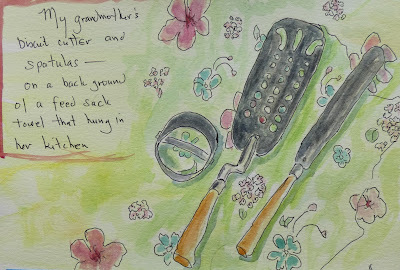 My grandmother's
biscuit cutter and
spatulas —
on a background
of a feed sack
towel that hung in
her kitchen